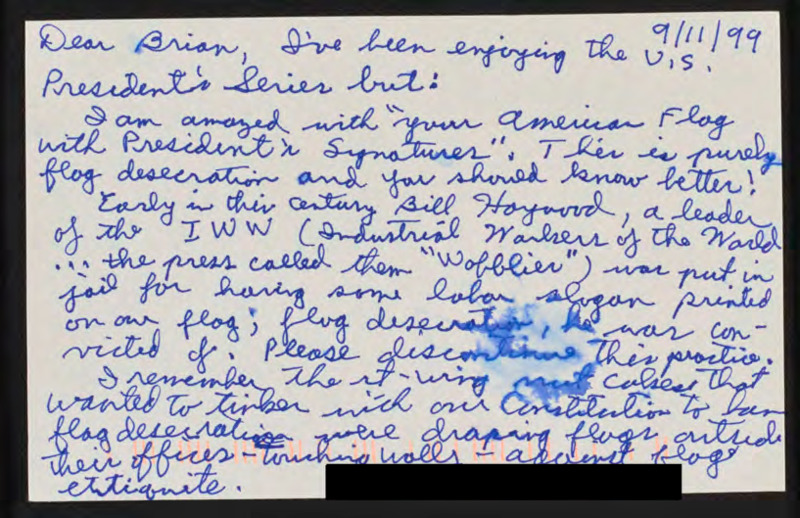 9/11/99
Dear Brian, I've been enjoying the U.S.
President's Series but:
I am amazed with "your American Flag
with President's Signatures". This is purely
flag desecration and you should know better!
Early in this century Bill Haywood, a leader
of the IWW (Industrial Workers of the World
... the press called them "Wobblies") was put in
jail for having some labor slogan printed
on our flag; flag desecration, he was con-
victed of. Please discontinue this practice.
I remember the rt-wing that
wanted to tinker with our Constitution to ban
flag desecration were draping flags outside
their offices - touching walls - against flag
etiquite.